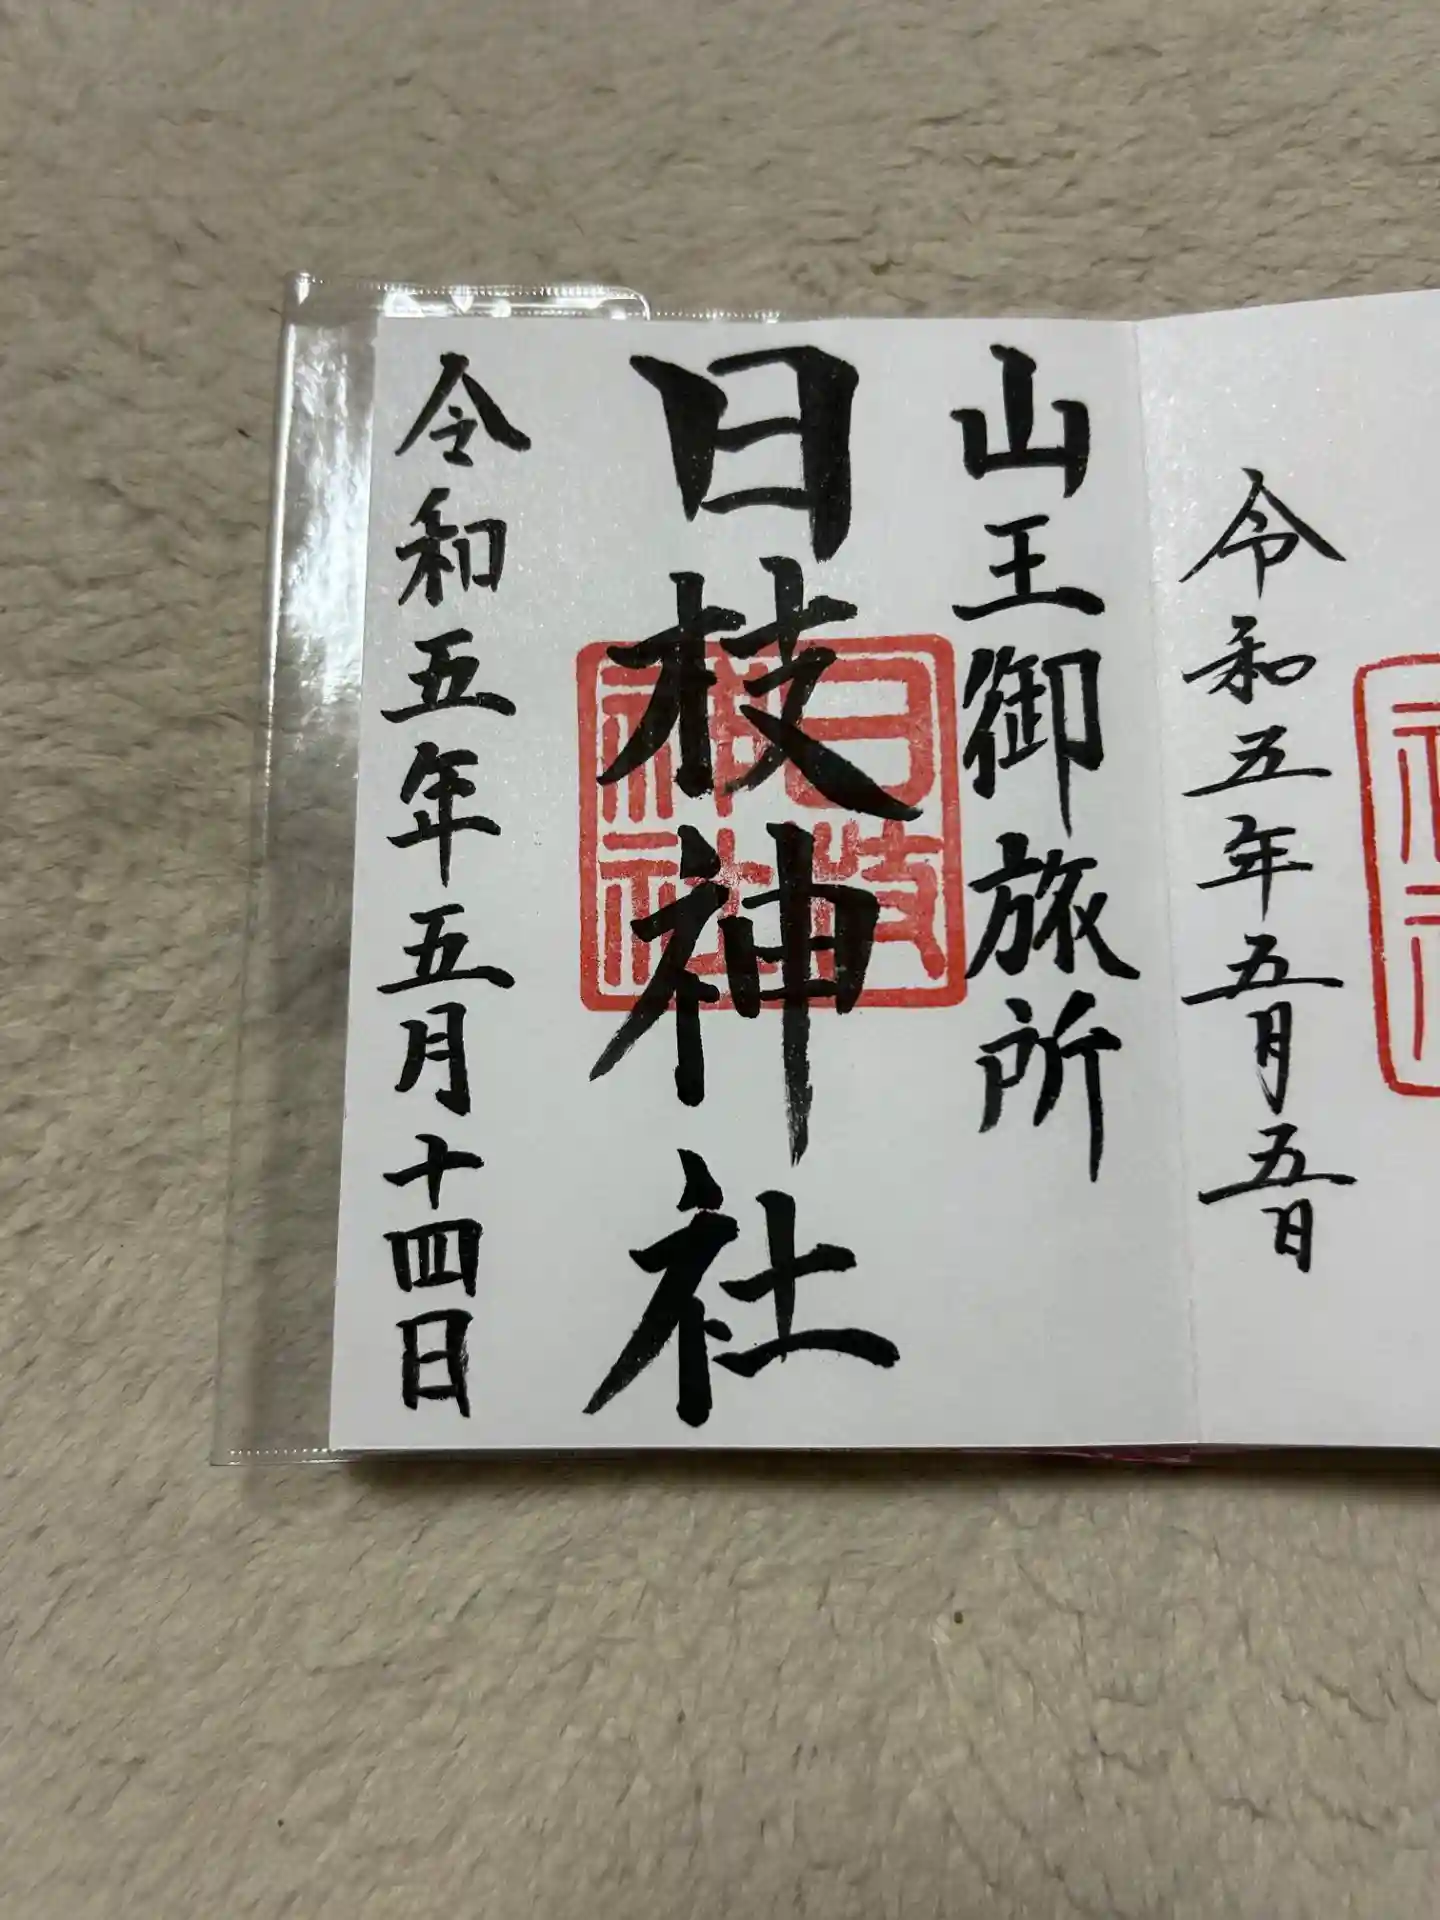 令和五年五月五日
山王御旅所
日枝神社
日枝
神社
令和五年五月十四日